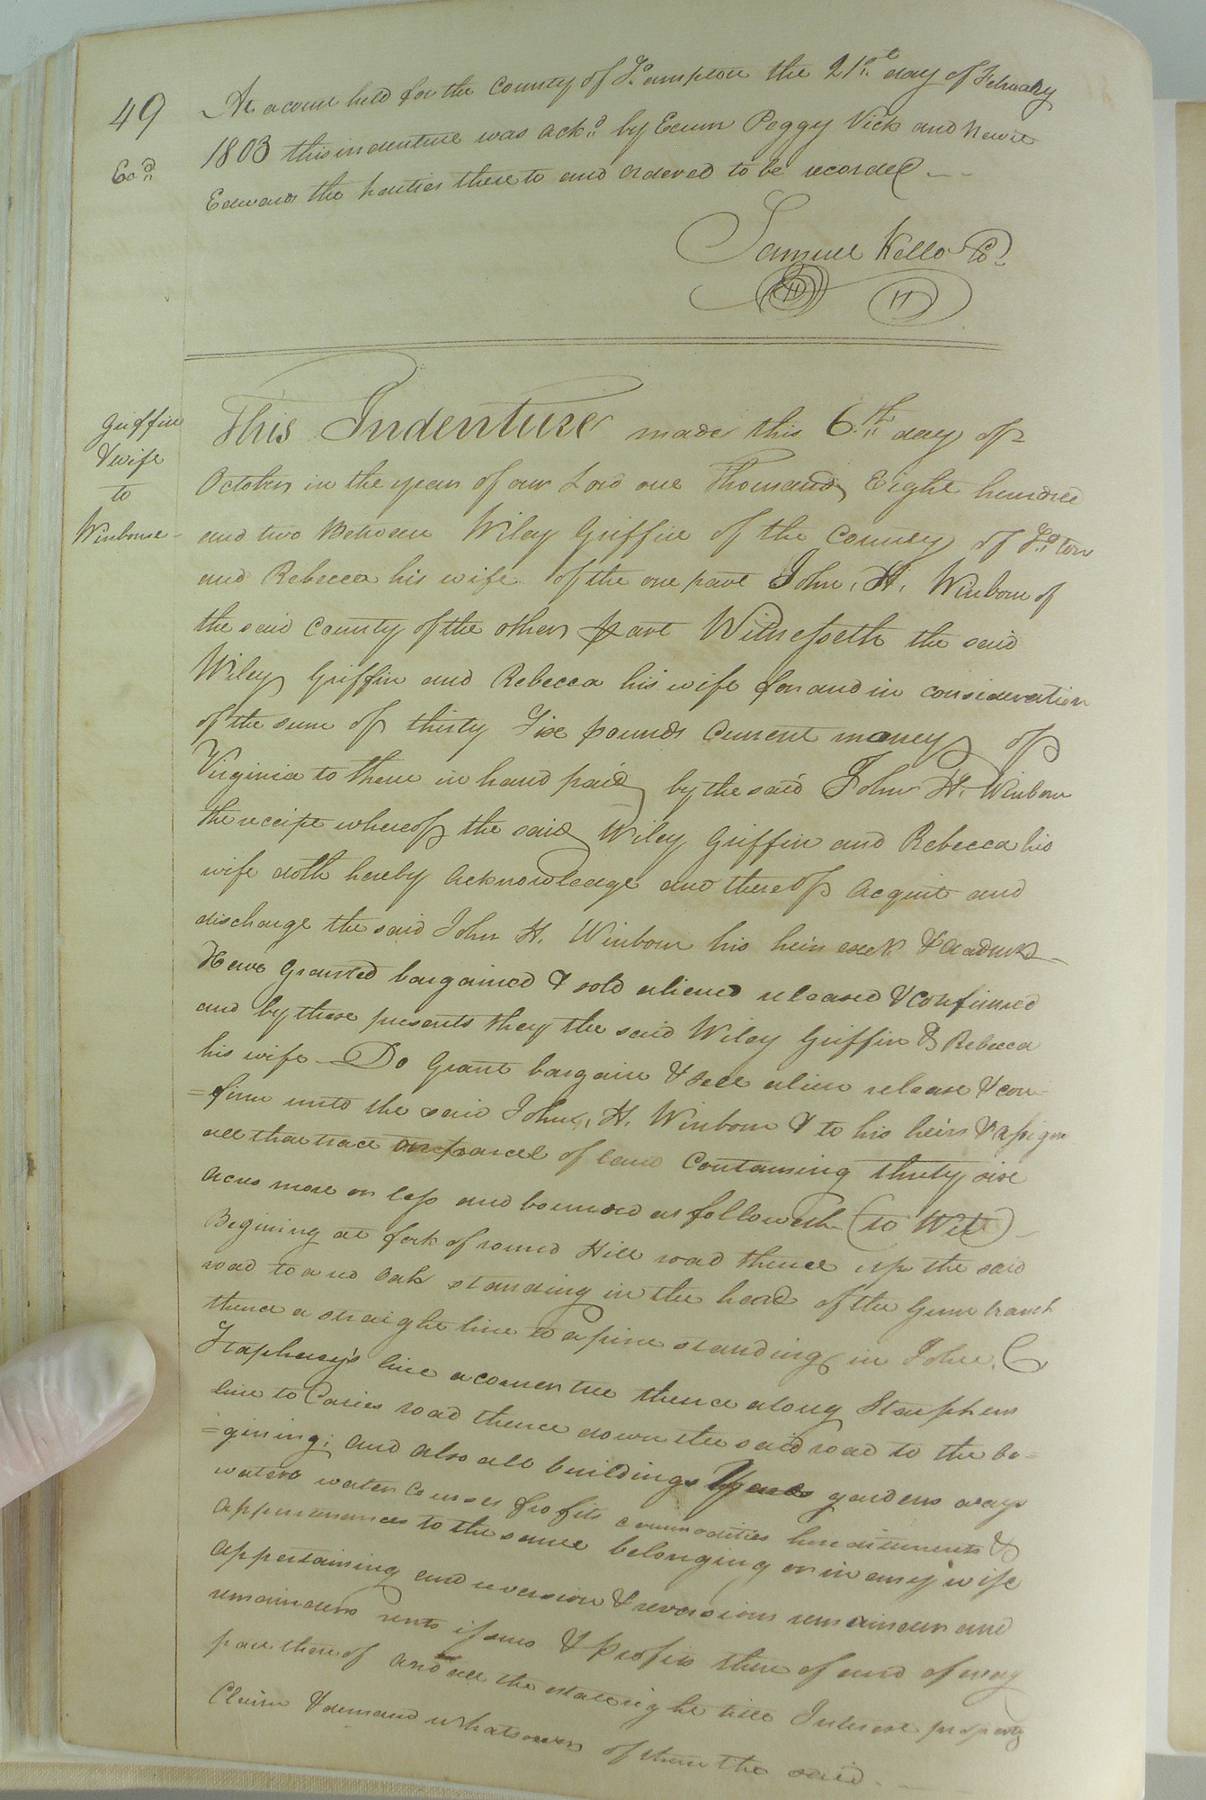 49
Ex.d
At a court held for the County of So.ampton the 21st day of February
1803 this indenture was ackd by Exum Peggy Vick and Newit
Edwards the parties thereto and ordered to be recorded
Samuel Kello Cr.
Griffin
& wife
to
Winborne
This Indenture made this 6th day of
October in the year of our Lord one Thousand Eight hundred
and two Between Wiley Griffin of the County of So.ton
and Rebecca his wife of the one part John, H. Winborn of
the said County of the other part Witnesseth the said
Wiley Griffin and Rebecca his wife for and in consideration
of the sum of thirty Six pounds Current money of
Virginia to them in hand paid by the said John H. Winborn
the receipt whereof the said Wiley Griffin and Rebecca his
wife doth hereby Acknowledge and thereof Acquit and
discharge the said John H. Winborn his heirs execrs & admrs
Have Granted bargained & sold aliened released & confirmed
and by these presents they the said Wiley Griffin & Rebecca
his wife Do Grant bargain & sell alien release & con-
=firm unto the said John, H. Winborn & to his heirs & assigns
all that tract or parcel of land Containing thirty six
acres more or less and bounded as followeth (to Witt)
Begining at fork of round Hill road thence up the said
road to a red oak standing in the head of the Gum branch
thence a straight line to a pine standing in John, C
line a corner tree thence along
line to road thence down the said road to the be=
=gining; and also all buildings Yards gardens ways
waters water Courses profits commodities herediments &
Appurnanances to the same belonging or in any wise
Appertaining and reversion & reversions remainder and
remainders rents issues & profits there of and of every
part thereof and all the estate right title Interest property
Claim & demand whatsoever of them the said